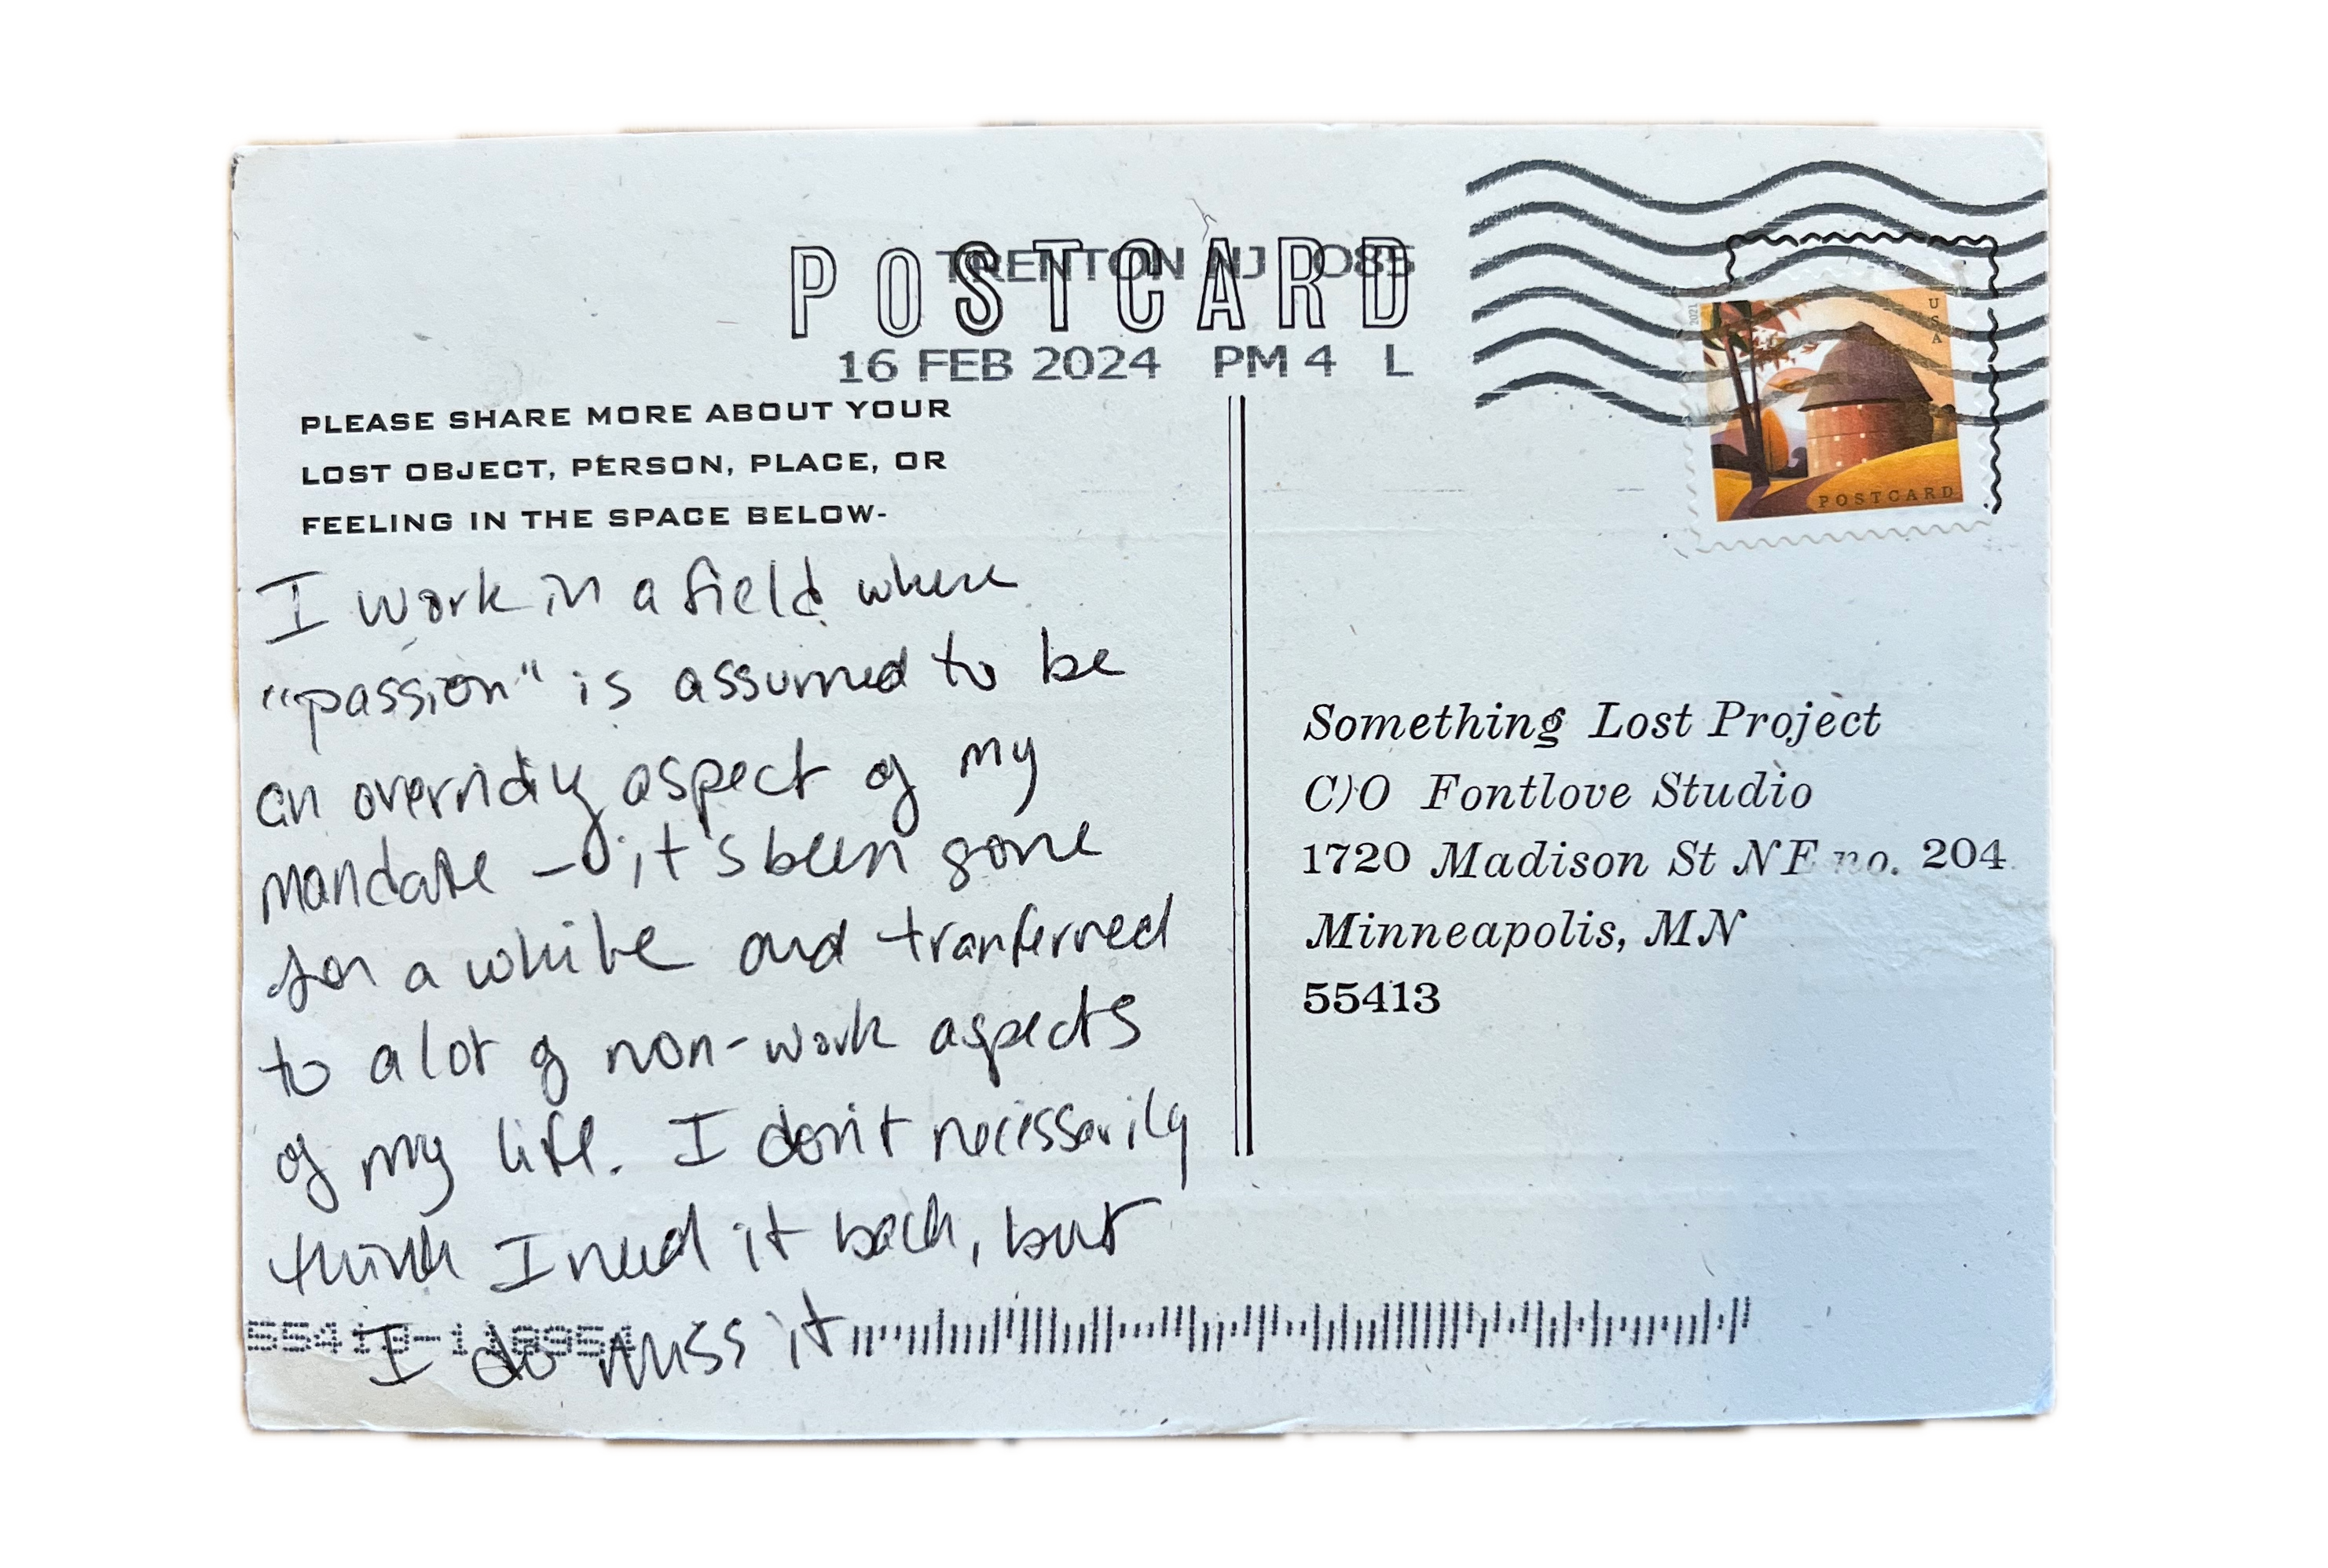 POSTCARD
TRENTON NJ 085
16 FEB 2024 PM 4 L
USA
2021
POSTCARD
PLEASE SHARE MORE ABOUT YOUR
LOST OBJECT, PERSON, PLACE, OR
FEELING IN THE SPACE BELOW-
I work in a field where
"passion" is assumed to be
an overriding aspect of my
mandate – it's been gone
for a while and tranferred
to a lot of non-work aspects
of my life. I don't necessarily
think I need it back, but
I do miss it
Something Lost Project
C/O Fontlove Studio
1720 Madison St NE no. 204
Minneapolis, MN
55413